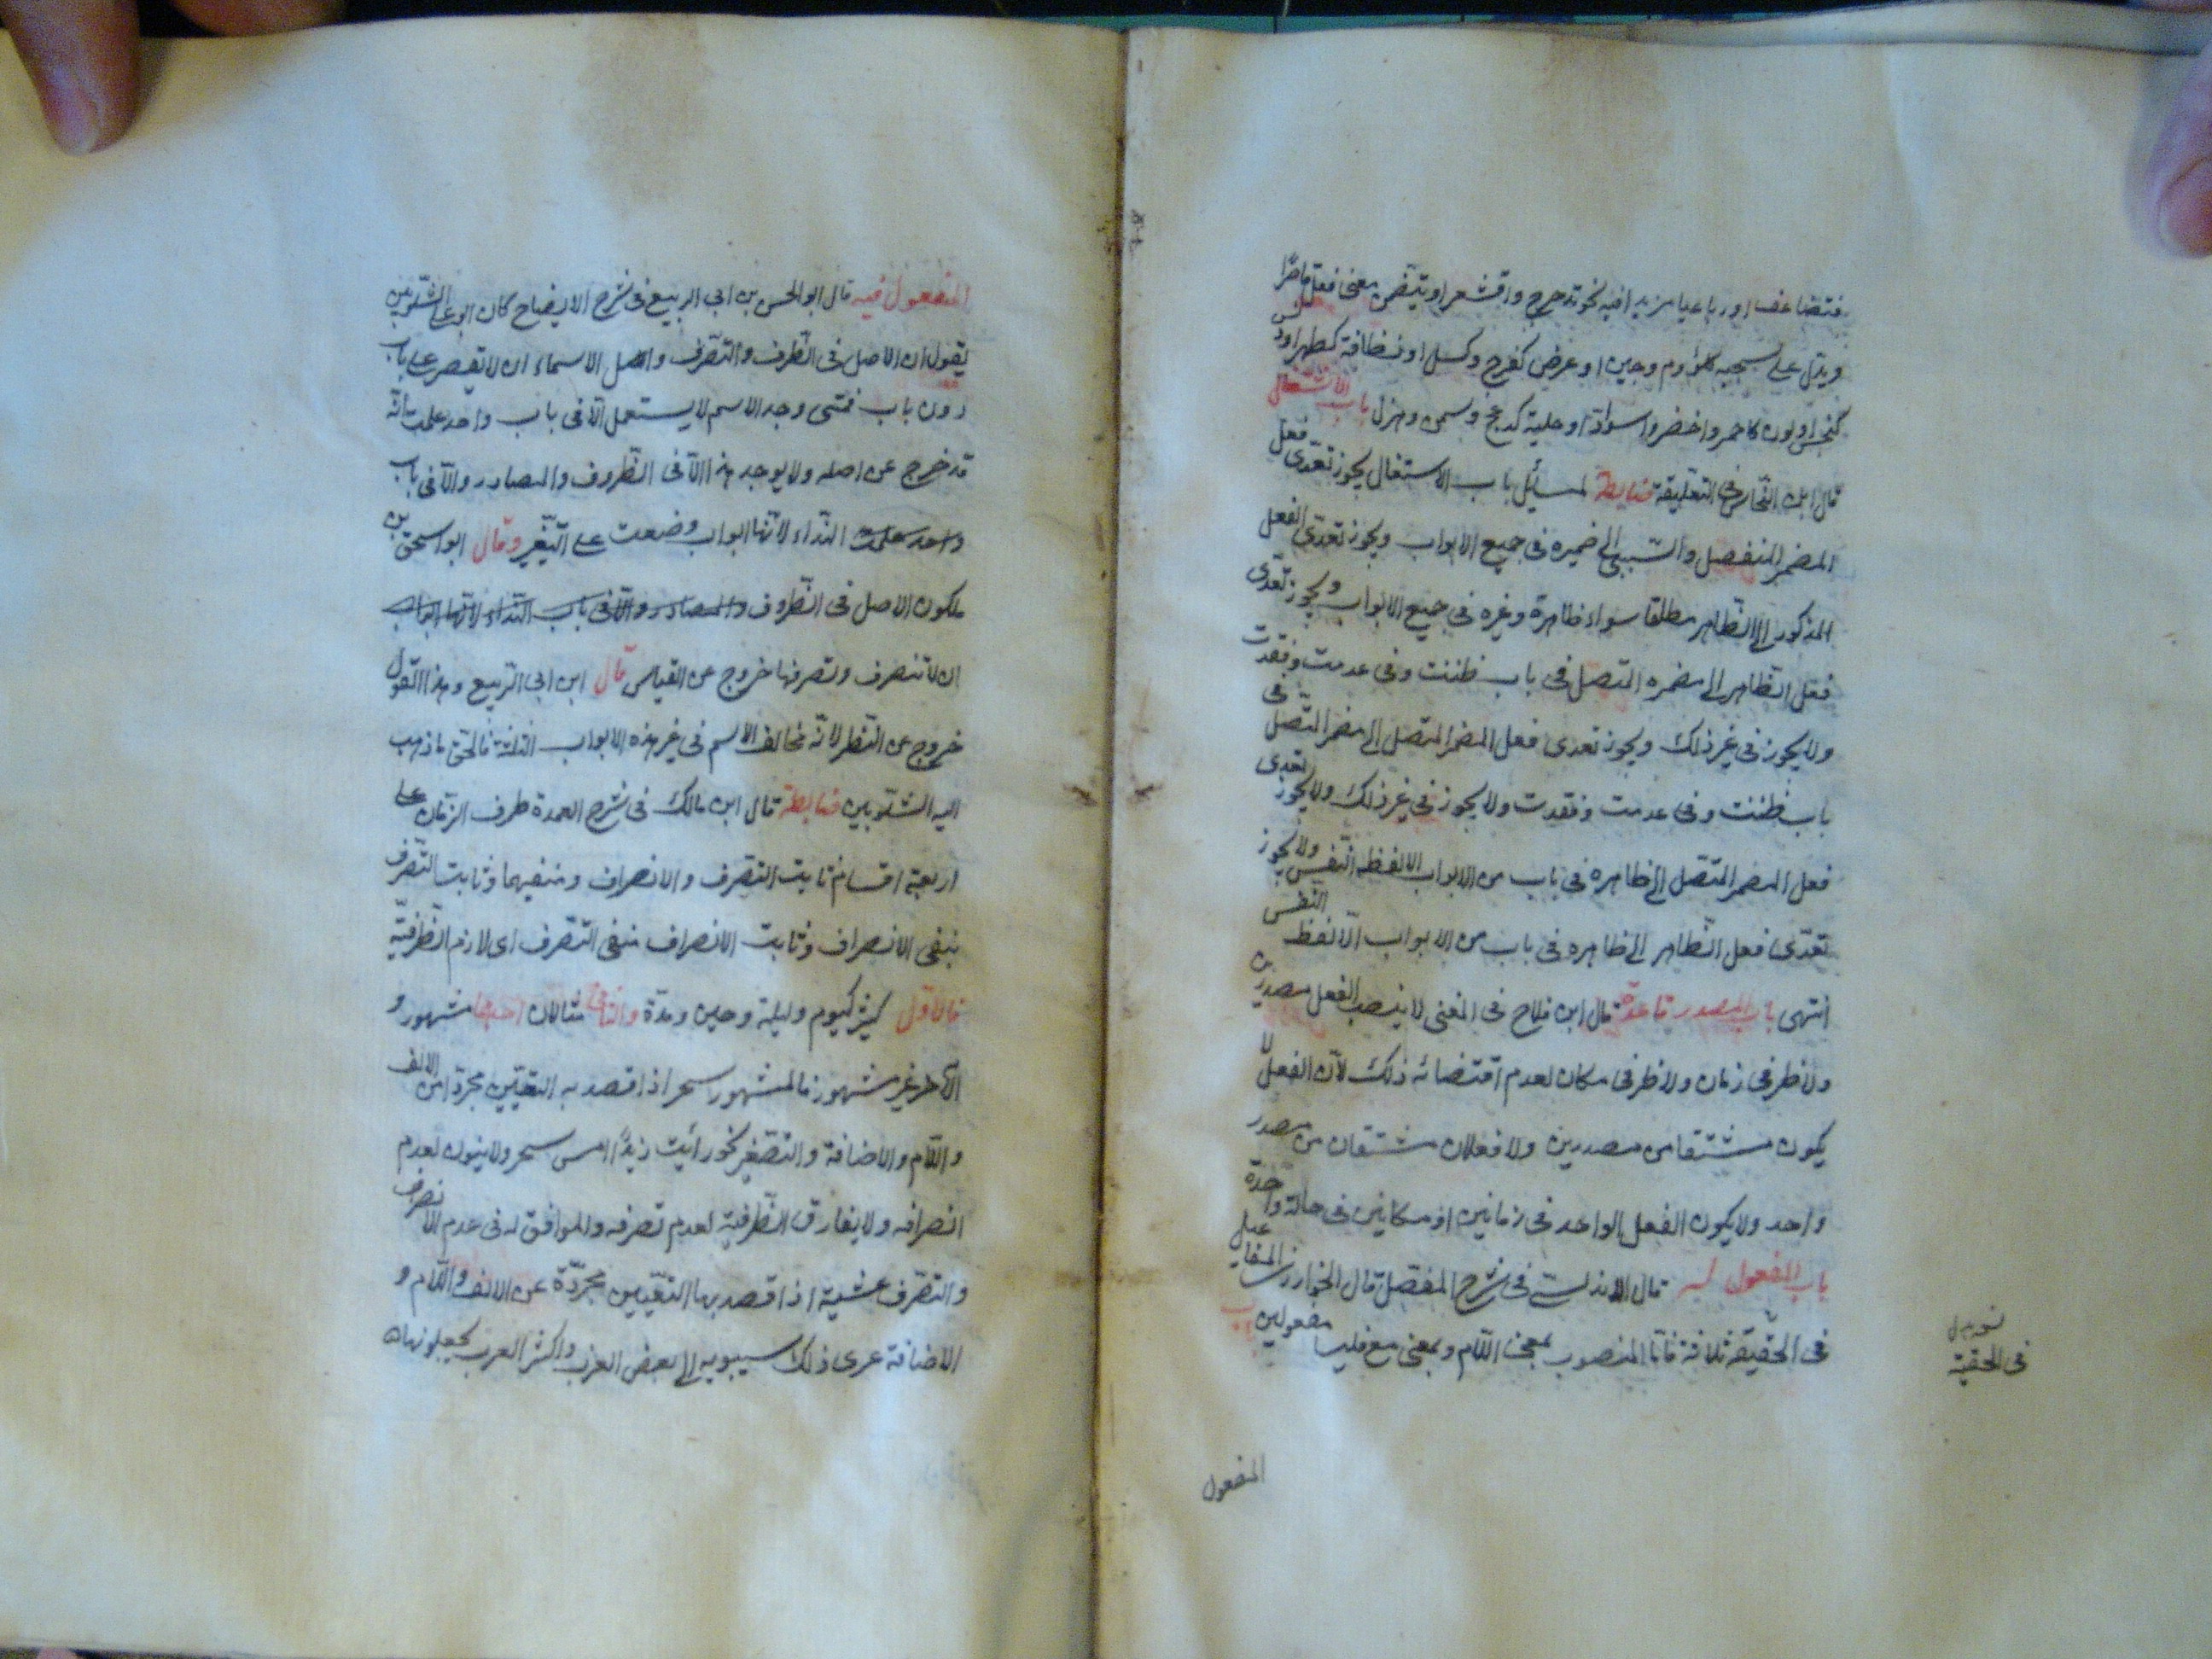 فتضاعف او رباعيا مزيدا فيه نحو تدحرج واقشعر او يتضمن معنى فعل قاصر
ويدل على سجية كلؤم وجبن او عرض كفرح وكسل او نظافة كطهر او دنس
كنجس او لون كاحمر واخضر واسواد او حلية كدعج وسمن وهزل باب الاشتغال
قال ابن النحاس في التعليقة ضابطة لمسائل باب الاشتغال يجوز تعدى فعل
المضمر المنفصل والسببى الى ضميره فى جميع الابواب ويجوز تعدى الفعل
المذكور الى الظاهر مطلقا سواء ظاهرة وغيره فى جميع الابواب ويجوز تعدى
فعل الظاهر الى مضمره المتصل فى باب ظننت وفى عدمت وفقدت
ولا يجوز فى غير ذلك ويجوز تعدى فعل المضمر المتصل الى مضمر المتصل فى
باب ظننت وفى عدمت وفقدت ولا يجوز فى غير ذلك ولا يجوز تعدى
فعل المضمر المتصل الى ظاهره فى باب من الابواب الا لفظ النفس ولا يجوز
تعدى فعل الظاهر الى ظاهره فى باب من الابواب الا لفظ النفس
انتهى باب المصدر قاعدة قال ابن فلاح فى المغنى لا ينصب الفعل مصدرين
ولا ظرفى زمان ولا ظرفى مكان لعدم اقتضائه ذلك لان الفعل لا
يكون مشتقا من مصدرين ولا فعلان مشتقان من مصدر
واحد ولا يكون الفعل الواحد فى زمانين او مكانين فى حالة واحدة
باب المفعول له قال الاندلسى فى شرح المفصل قال الخوارزمى المفاعيل
فى الحقيقة ثلاثة فاما المنصوب بمعنى اللام وبمعنى مع فليسا مفعولين باب
فى الحقيقة
المفعول
المفعول فيه قال ابو الحسن بن ابى الربيع فى شرح الايضاح كان ابو على الشلوبين
يقول ان الاصل فى الظرف والتصرف واصل الاسماء ان لا تقتصر على باب
دون باب فمتى وجد الاسم لا يستعمل الا فى باب واحد علمت بانه
قد خرج عن اصله ولا يوجد هذا الا فى الظروف والمصادر والا فى باب
واحد علمت النداء لانها ابواب وضعت على التغيير وقال ابو اسحق بن
ملكون الاصل فى الظروف والمصادر والا فى باب النداء لانها ابواب
ان لا تتصرف وتصرفها خروج عن القياس قال ابن ابى الربيع وهذا القول
خروج عن النظر لانه مخالف الاسم فى غير هذه الابواب الثلثة فالحق ما ذهب
اليه الشلوبين ضابطة قال ابن مالك فى شرح العمدة ظرف الزمان على
اربعة اقسام ثابت التصرف والانصراف ومنفيهما وثابت التصرف
منفى الانصراف وثابت الانصراف منفى التصرف اى لازم الظرفية
فالاول كثير كيوم وليلة وحين ومدة والثانى مثالان احدهما مشهور و
الاخر غير مشهور فالمشهور سحر اذا قصد به التعيين مجردا من الالف
واللام والاضافة والتصغير نحو رايت زيدا امس سحر ولا ينون لعدم
انصرافه ولا يفارق الظرفية لعدم تصرفه والموافق له فى عدم الانصراف
والتصرف عشية اذا قصد بها التعيين مجردة عن الالف واللام و
الاضافة عزى ذلك سيبويه الى بعض العرب واكثر العرب يجعلونها